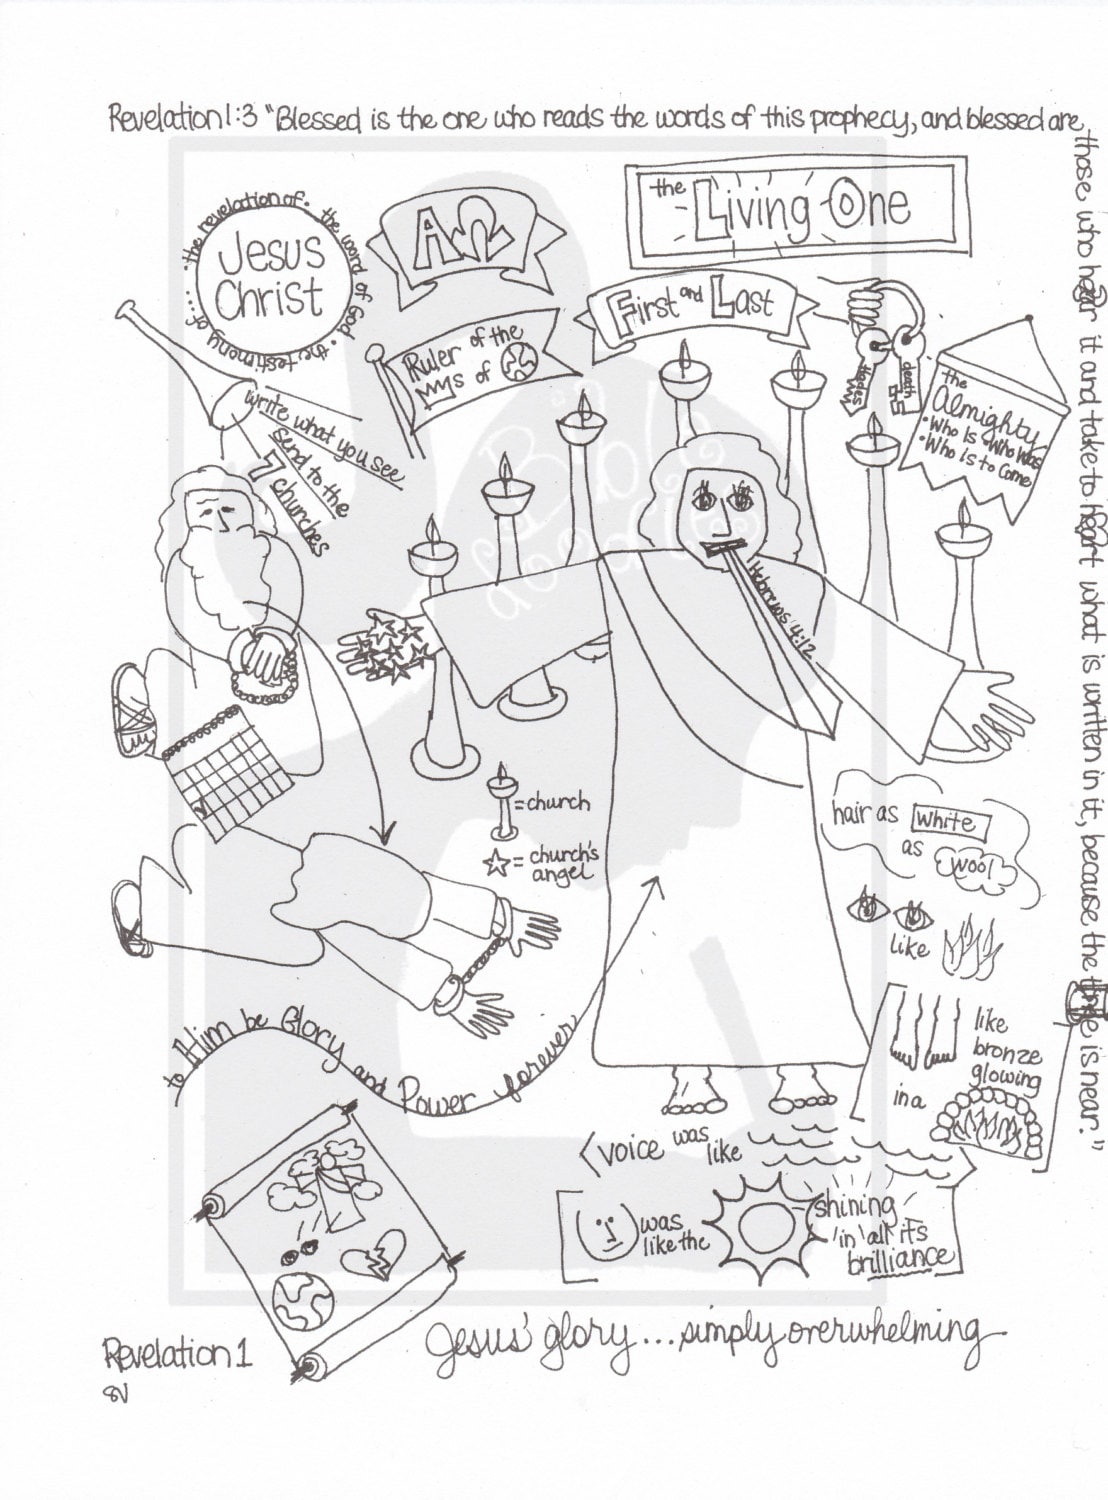 Revelation 1:3 "Blessed is the one who reads the words of this prophecy, and blessed are
those who hear it and take to heart what is written in it, because the time is near."
the revelation of • the word of God • the testimony of...
Jesus
Christ
ΑΩ
the Living One
First and Last
Ruler of the
s of
Hades
death
the
Almighty
• Who Is • Who Was
• Who is to Come
write what you see
send to the
7 churches
Bible
doodles
Hebrews 4:12
= church
= church's
angel
hair as white
as wool
like
like
bronze
glowing
in a
to Him be Glory and Power forever
voice was like
was
like the
shining
in all its
brilliance
Jesus' glory... simply overwhelming
Revelation 1